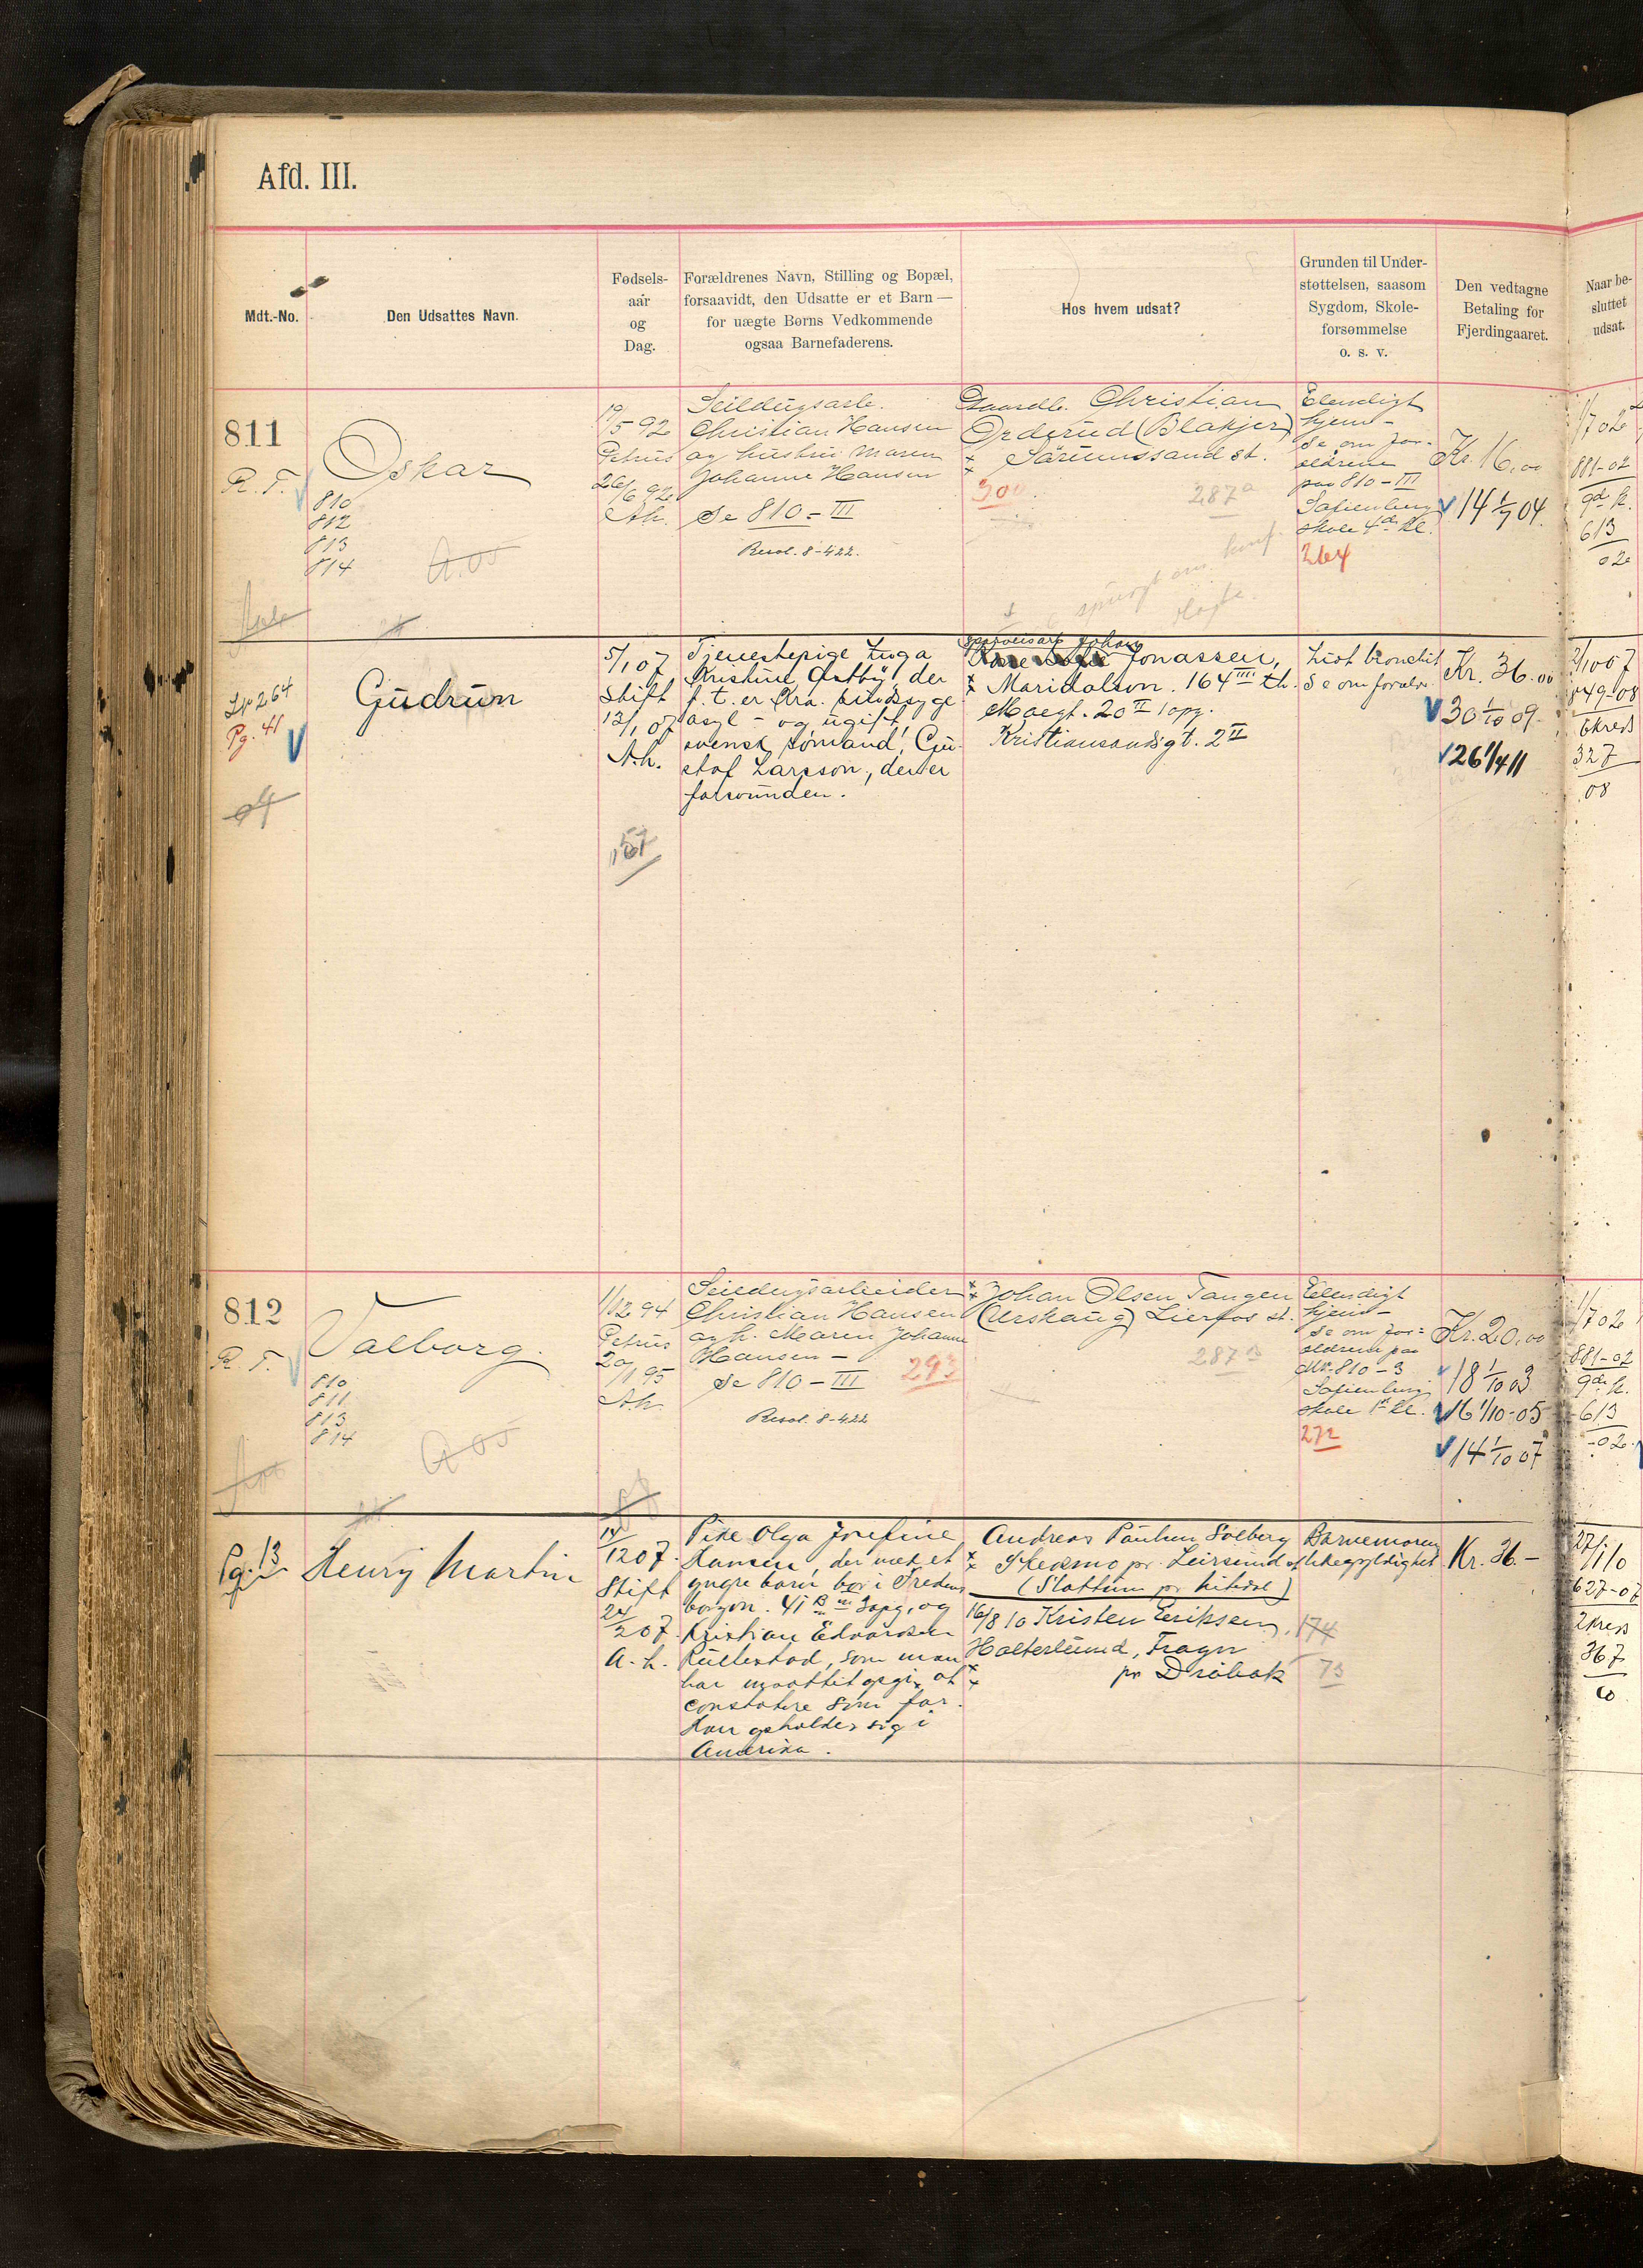 Afd. III.
Mdt.-No.
Den Udsattes Navn.
Fødsels-
aar
og
Dag.
Forældrenes Navn, Stilling og Bopæl,
forsaavidt, den Udsatte er et Barn —
for uægte Børns Vedkommende
ogsaa Barnefaderens.
Hos hvem udsat?
Grunden til Under-
støttelsen, saasom
Sygdom, Skole-
forsømmelse
o. s. v.
Den vedtagne
Betaling for
Fjerdingaaret.
Naar be-
sluttet
udsat.
811
R. T.
Oskar
810
812
813
814
19/5 92
Petrus
26/6 92
A.h.
Seildugsarb.
Christian Hansen
og hustru Maren
Johanne Hansen
Se 810 - III
Besl. 8-422.
Gaardbr. Christian
Orderud (Blakjer)
Sørumssand st.
300
287a
spurgt om konf.
Elendigt
hjem-
se om for-
ældrene
paa 810 - III
Sofienberg
skole 4de kl.
264
Kr. 16,00
14 1/7 04.
1/7 02
881-02
9de k.
613
02
Lp 264
Pg. 41
Gudrun
5/1 07
Stift
13/1 07
A.h.
157
Tjenestepige Inga
Kristine Østby, der
f. t. er Kra. sindssyge
asyl - og ugift
svensk sømand, Gu-
staf Larsson, der er
forsvunden.
Sporveisarb Johan
Jonassen,
Maridalsvn. 164 III th.
Kristiansandsgt. 2 II
se om forældr.
Kr. 36.00
30 1/10 09.
26 1/4 11
849-08
6kreds
327
08
812
R. T.
Valborg.
810
811
813
814
1/12 94
Petrus
20/1 95
A.h.
Seildugsarbeider
Christian Hansen
og h. Maren Johanne
Hansen -
se 810 - III
293
Besl. 8-422
Johan Olsen Tangen
(Urskaug) Lierfos st.
287B
Elendigt
hjem-
se om for-
ældrene paa
Mtr. 810-3
Sofienberg
skole 1ste kl.
272
Kr. 20,00
18 1/10 03
16 1/10-05
14 1/10 07
1/7 02
881-02
9de k.
613
-02.
Pg. 13
Henry Martin
14/12 07.
Stift
24/2 07.
A. h.
Pike Olga Josefine
Hansen, der med et
yngre barn bor i Fredens-
borgvn. 41 B III 3opg, og
Kristian Edvardsen
Rullestad, som man
har maattet opgi at
constatere som far.
Han opholder sig i
Amerika.
Andreas Paulsen Solberg
Skedsmo pr. Leirsund st
(Slattum pr Nitedal)
16/8 10 Kristen Eriksen,
Holterlund, Frogn
pr Drøbak
Barnemoren
likegyldighet
174
73
Kr. 36.-
27/1 10
627-07
2kreds
367
10